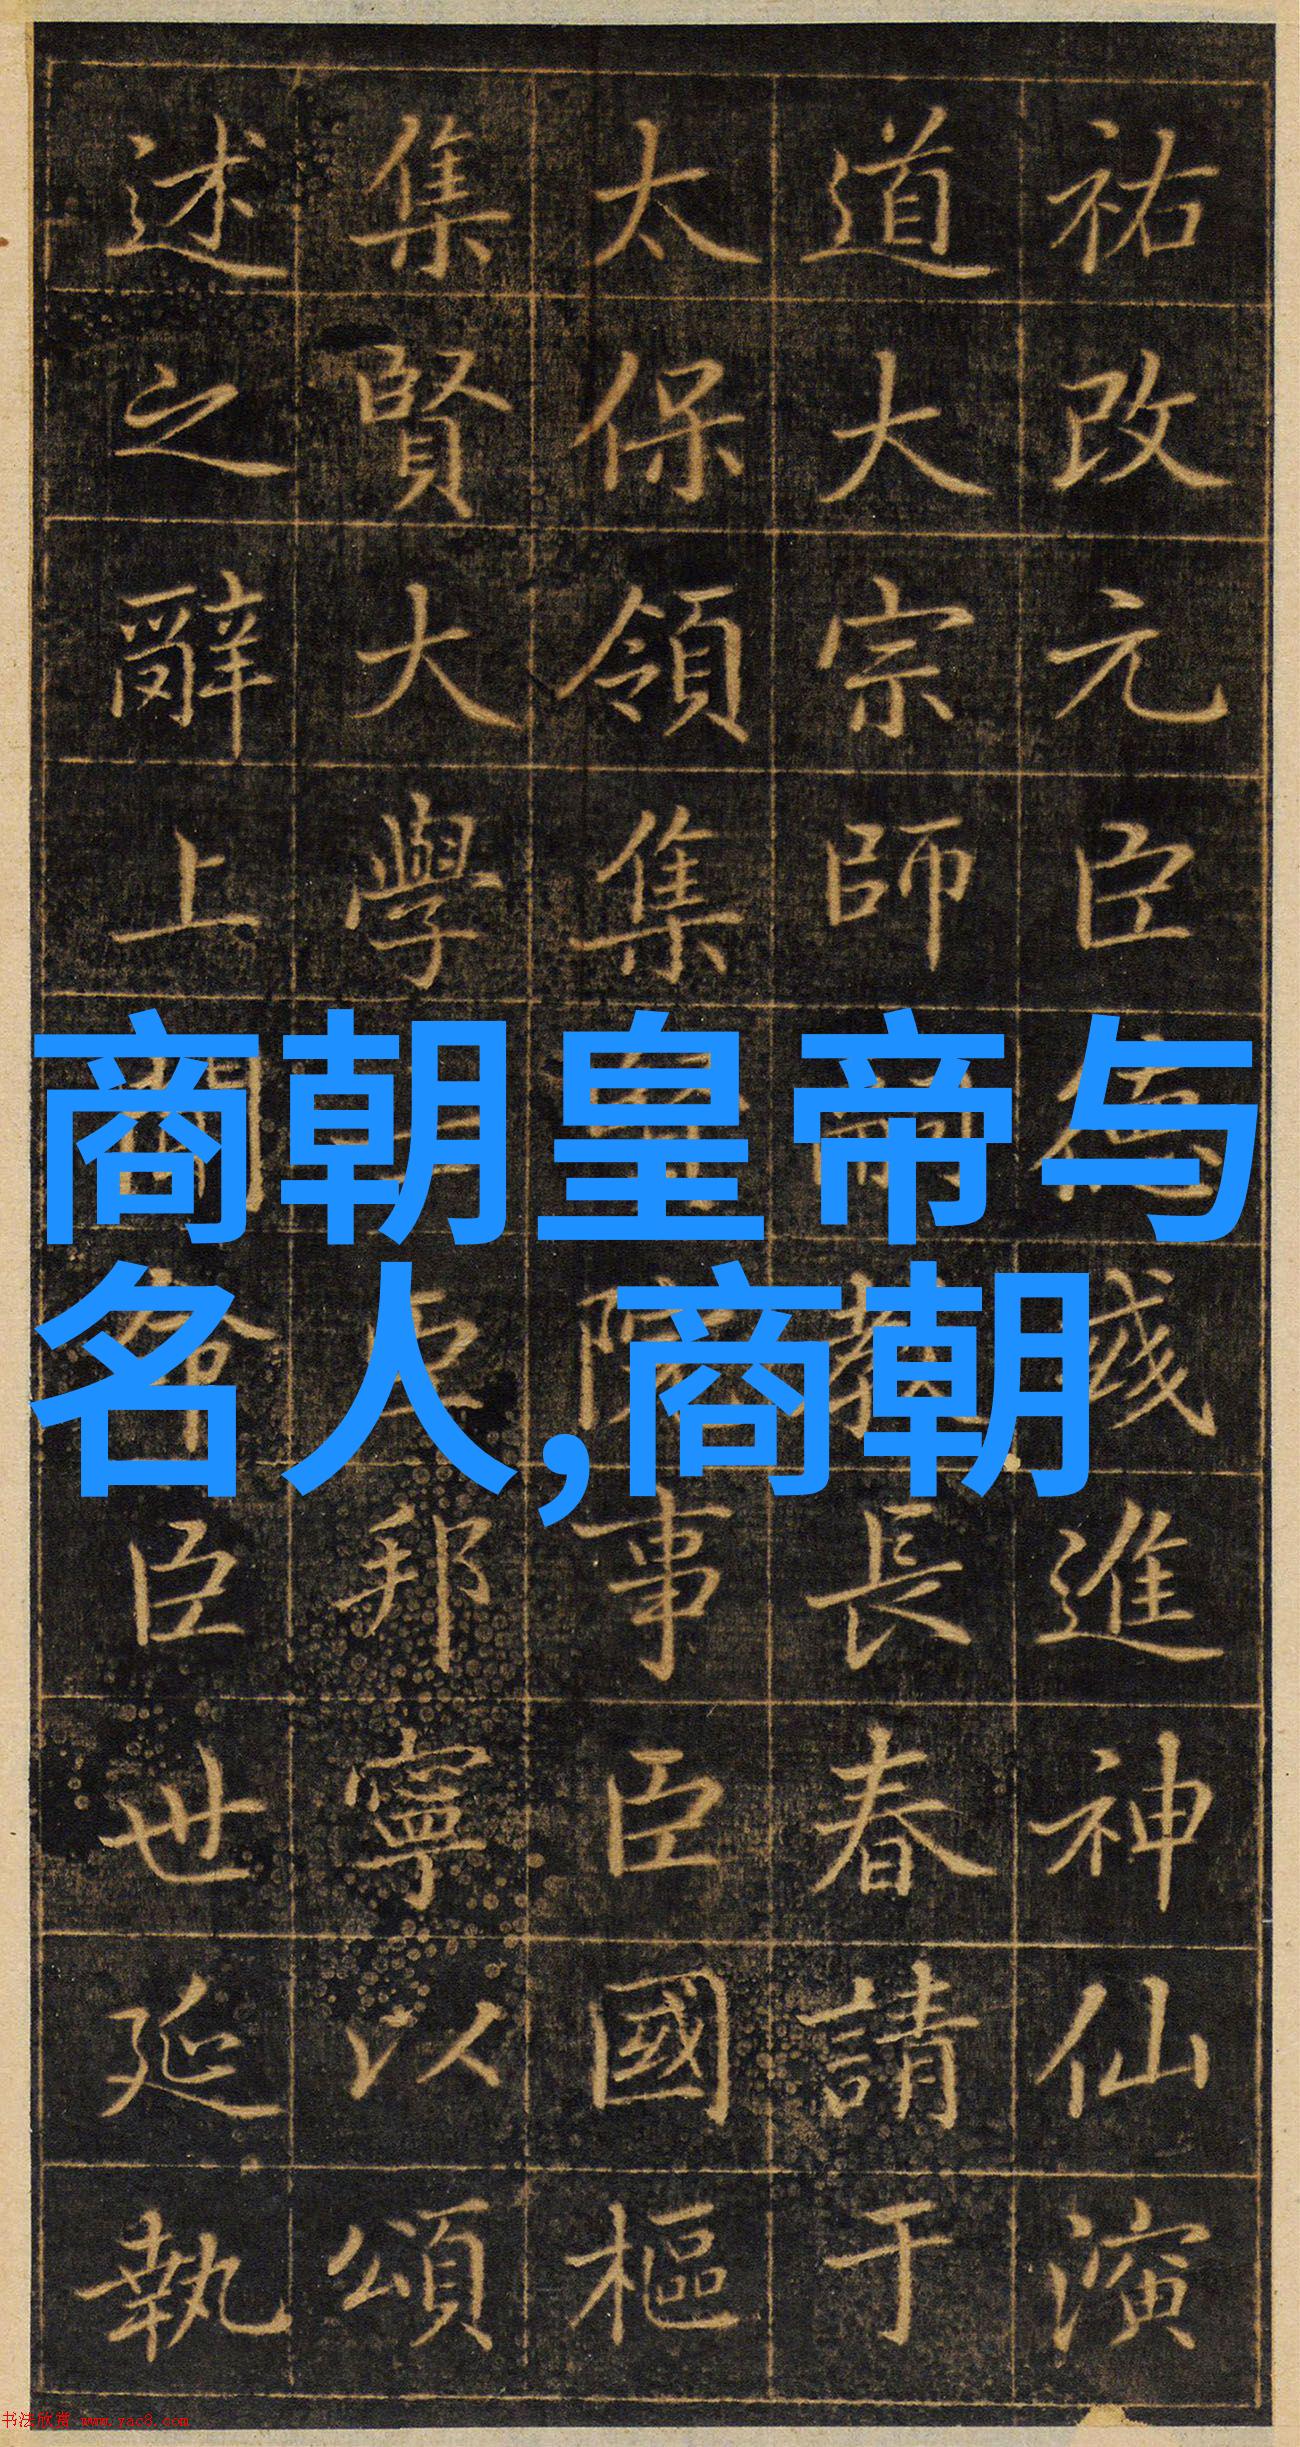 祐改元臣德彧進神仙演
道大宗師教長春請于
太保領集院事臣國樞
集賢大學士臣邦寧以頌
述之辭上聞命臣世延執
商朝皇帝与
名人,商朝
书法欣赏 www.yac8.com